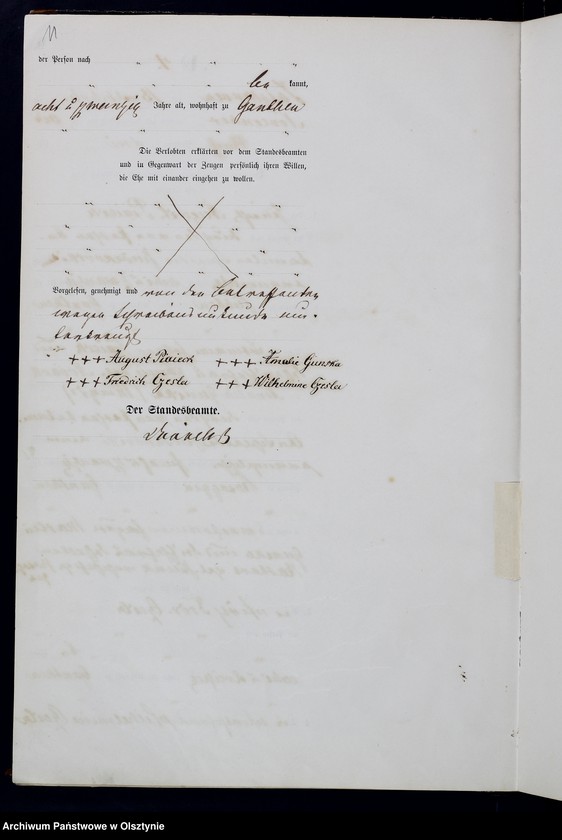 11
der Person nach " " "
" " " be kannt,
acht u zwanzig Jahre alt, wohnhaft zu Ganthen
" " " " "
Die Verlobten erklärten vor dem Standesbeamten
und in Gegenwart der Zeugen persönlich ihren Willen,
die Ehe mit einander eingehen zu wollen.
Vorgelesen, genehmigt und von den Betreffenden
wegen Schreibensunkunde un-
terkreuzt
+++ August Piwieck +++ Amalie Gunska
+++ Friedrich Czesla +++ Wilhelmine Czesla
Der Standesbeamte.
Archiwum Państwowe w Olsztynie